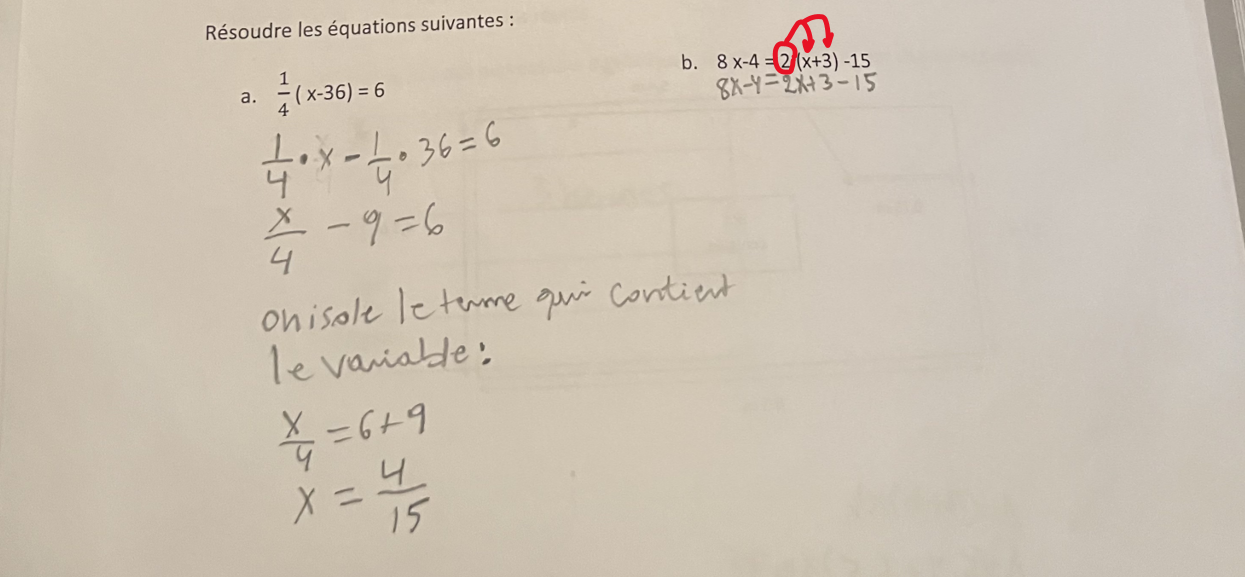 Résoudre les équations suivantes :
a. 1/4 ( x-36) = 6
1/4 • x - 1/4 • 36 = 6
x/4 - 9 = 6
on isole le terme qui contient
le variable :
x/4 = 6+9
x = 4/15
b. 8 x-4 = 2 (x+3) -15
8x-4=2x+3-15